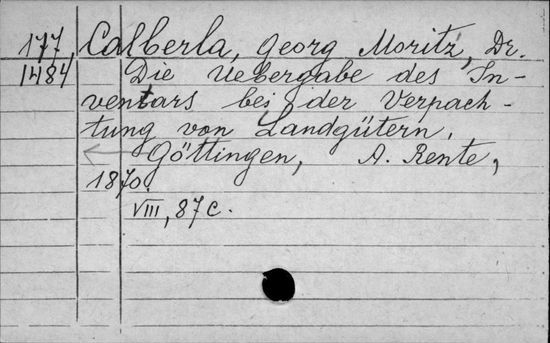 177, Calberla, Georg Moritz, Dr.
1484 Die Uebergabe des In-
ventars bei der Verpach-
tung von Landgütern.
Göttingen, A. Rente,
1870.
VIII, 87 c.